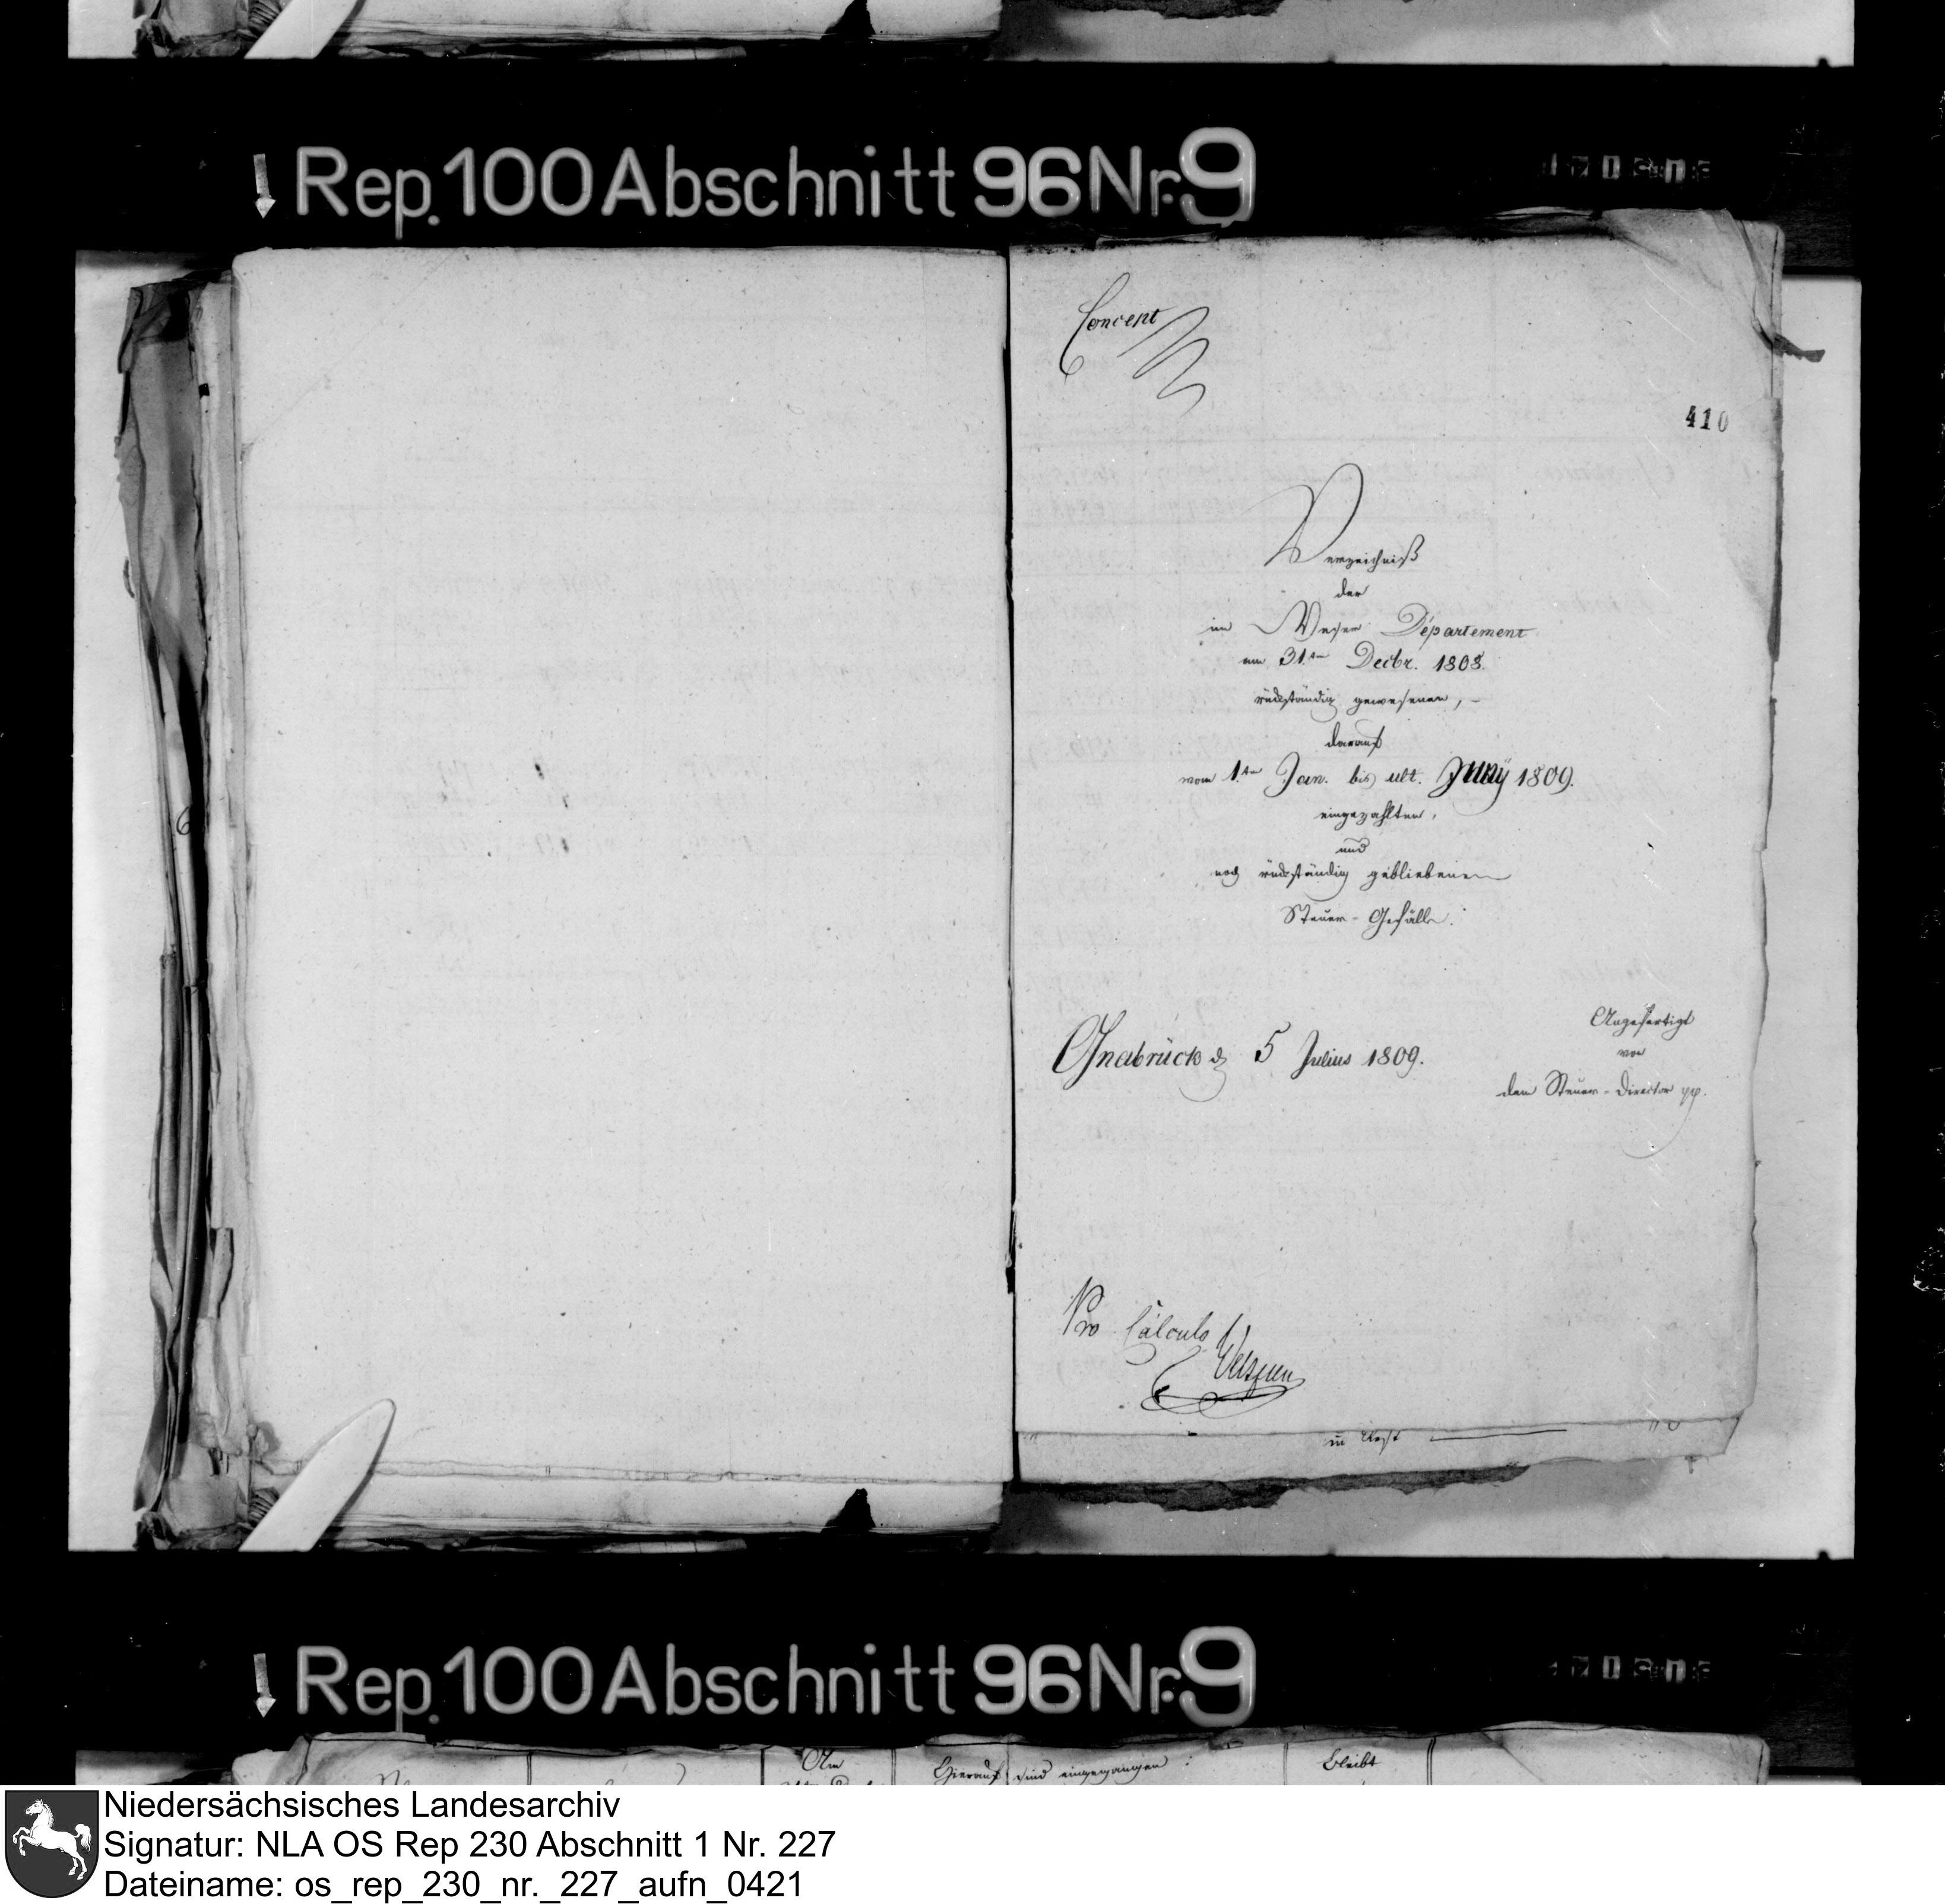 Rep. 100 Abschnitt 96 Nr. 9
Concept
410
Verzeichniß
der
im Weser Département
am 31.ten Decbr. 1808.
rückständig gewesenen, –
darauf
vom 1.ten Jan. bis ult. Juny 1809.
eingezahlten,
und
noch rückständig gebliebenen
Steuer-Gefälle.
Angefertigt
von
dem Steuer-Director pp.
Osnabrück d 5 Julius 1809.
Pro Calculo
in Rest
Rep. 100 Abschnitt 96 Nr. 9
Am
Hierauf sind eingegangen:
bleibt
Niedersächsisches Landesarchiv
Signatur: NLA OS Rep 230 Abschnitt 1 Nr. 227
Dateiname: os_rep_230_nr._227_aufn_0421